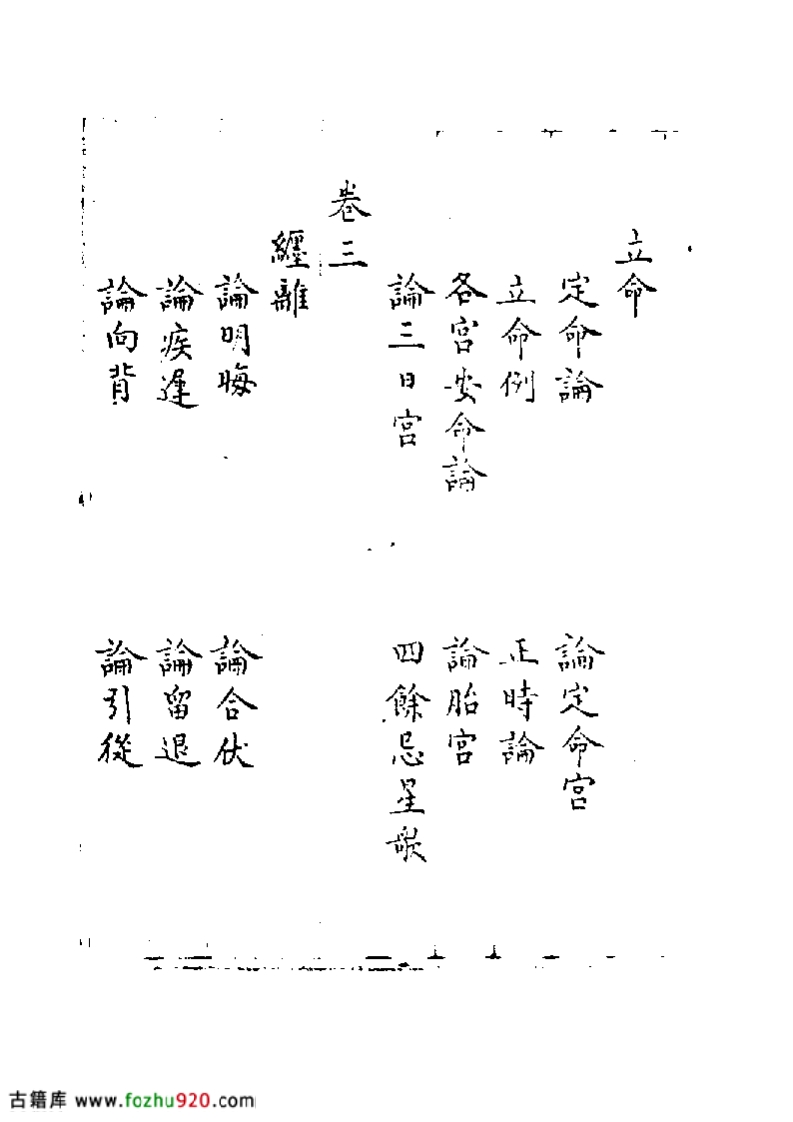 立命
定命論　論定命宮
立命例　正時論
各宮安命論　論胎宮
論三日宮　四餘忌星歌
卷三
纏離
論明晦　論合伏
論疾遲　論留退
論向背　論引從
古籍库 www.fozhu920.com